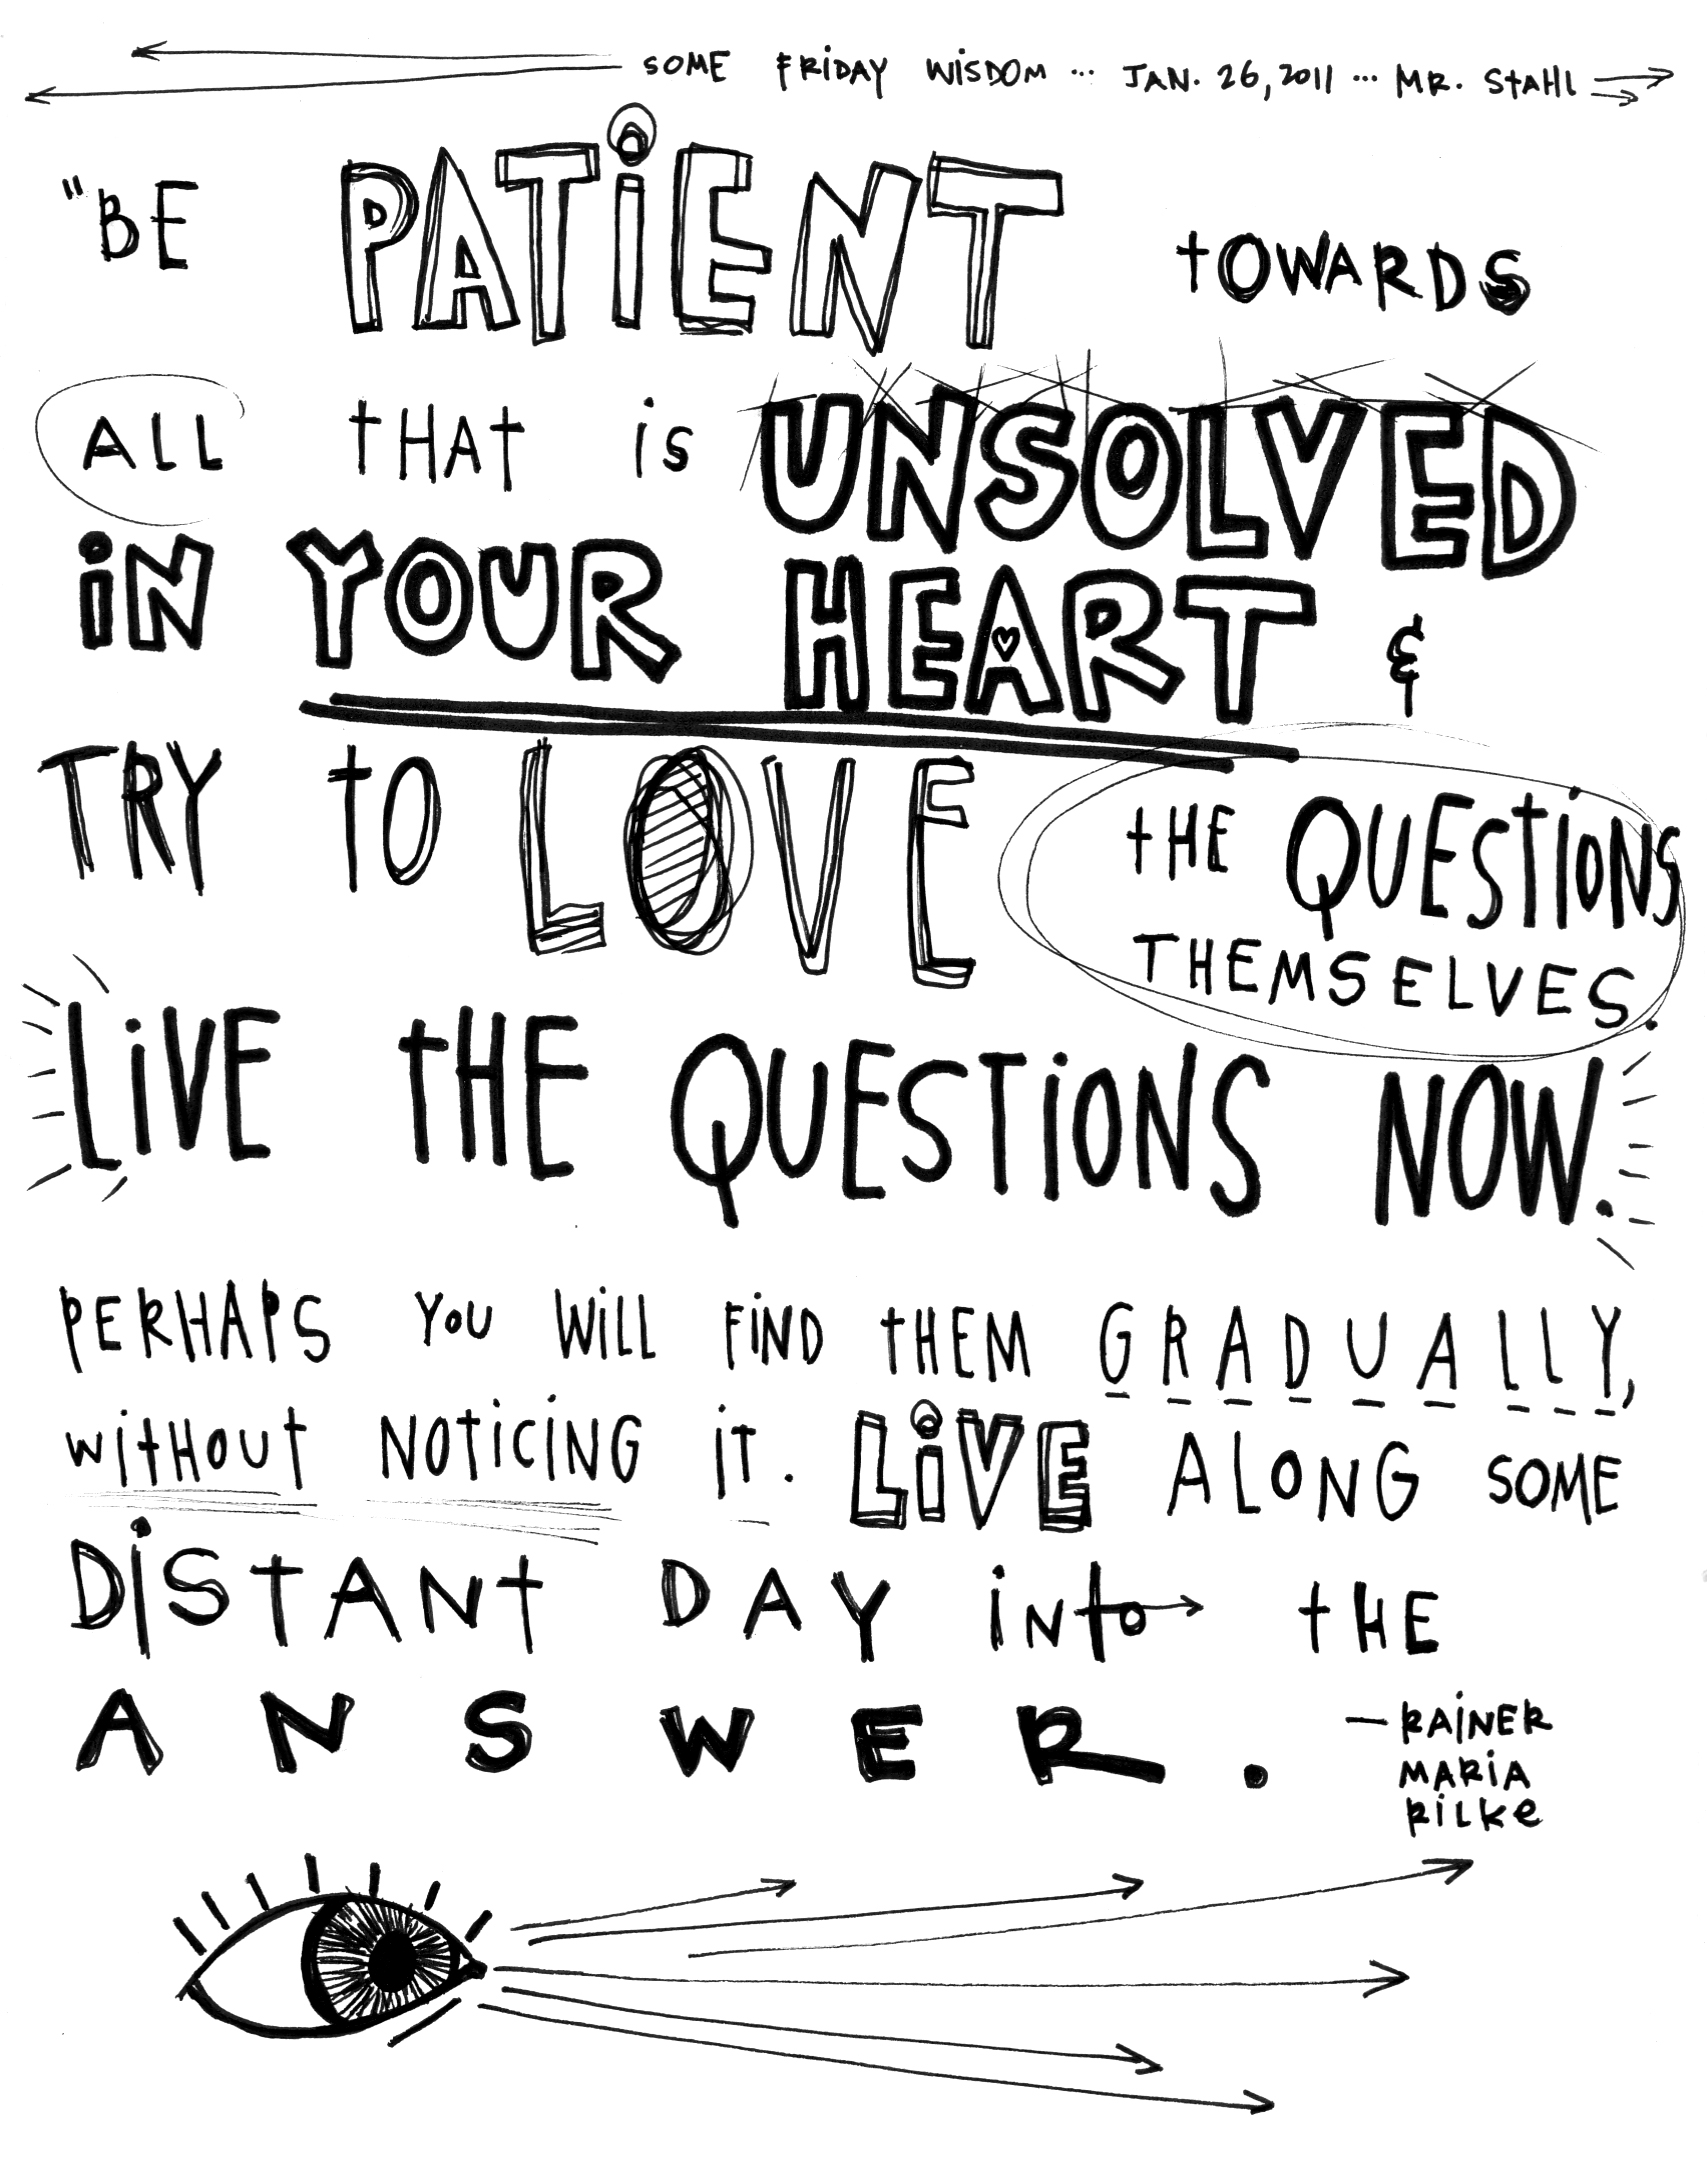 SOME FRiDAY WiSDOM ... JAN. 26, 2011 ... MR. StAHL
"BE PATiENT tOWARDS
ALL tHAt is UNSOLVED
iN YOUR HEART &
TRY tO LOVE tHE QUEStiONS
THEMSELVES.
LiVE tHE QUESTiONS NOW.
PERHAPS YOU WiLL FiND tHEM GRADUALLY,
WitHOUt NOtiCiNG iT. LiVE ALONG SOME
DiStANt DAY iNto tHE
ANSWER.
—RAiNER
MARiA
RiLKe